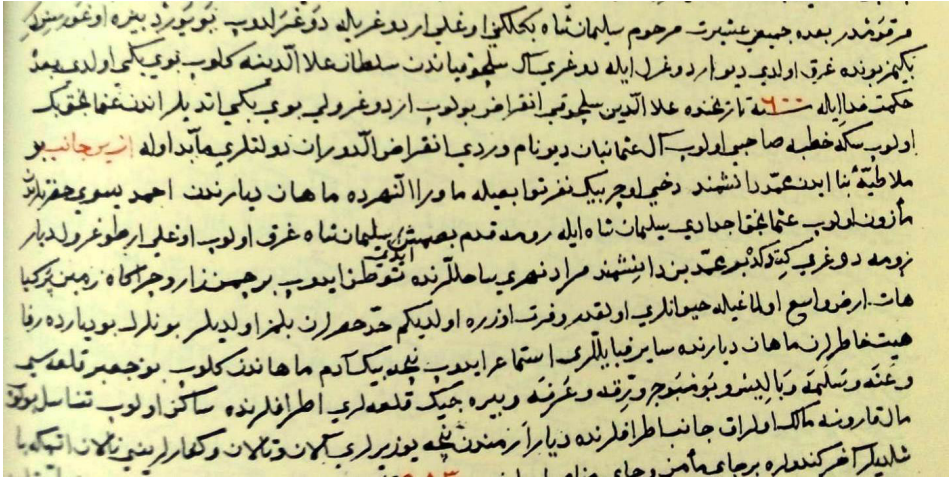 مرقومدر بعده جميع عشيرت مرحوم سليمان شاه بكلكنى اوغلى اردوغريله دوغرلدوب
بكمز بونده غرق اولدى ديو اردوغرل ايله دوغرى آل سلجوقياندن سلطان علا الدينه كلوب بوى بكى اولدى بعده
حكمت خدا ايله ٦٠٠ سنه تاريخنده علا الدين سلجوقى انقراض بولوب اردوغرولى بوى بكى اتديلر اندن عثمانجق بك
اولوب سكه خطبه صاحبى اولوب آل عثمانيان ديو نام ويردى انقراض الدوران دولتلرى مأبد اوله از ين جانب بو
ملاطيه بنا ايدن محمد دانشمند دخى اوچ بيك نفر توابعيله ماورا النهرده ماهان ديارندن احمد يسوى حضرتلرندن
مأزون اولوب عثمانجق اجدادى سليمان شاه ايله رومه قدم بصمش ايدى سليمان شاه غرق اولوب اوغلى ارطوغرول ديار
رومه دوغرى كتدكده بو محمد بن دانشمند مراد نهرى ساحللرنده توطن ايدوب بو چمنزار و چراكاه زمين پر كيا
هات ارض واسع اولماغيله حيوانلرى اولقدر وفرت اوزره اولديكم حد حصرن بلمز اولديلر بونلرك بو ديارده رفا
هيت خاطرلرن ماهان ديارنده ساير قبايللرى استماع ايدوب نچه بيك آدم ماهاندن كلوب بو جعبر قلعه سى
وعنه وسلميه وبالس و بو منبج ورقه وعرفه وبيره جيك قلعه لرى اطرافلرنده ساكن اولوب تناسل بولوب
مال قارونه مالك اولوب جانب اطرافلرنده ديار ارمندن نچه يوز يرلرى آلان وتالان وكفارلرينى نالان اتمكه با
شلديلر آخر كندولره بر جاى مأمن و جاى